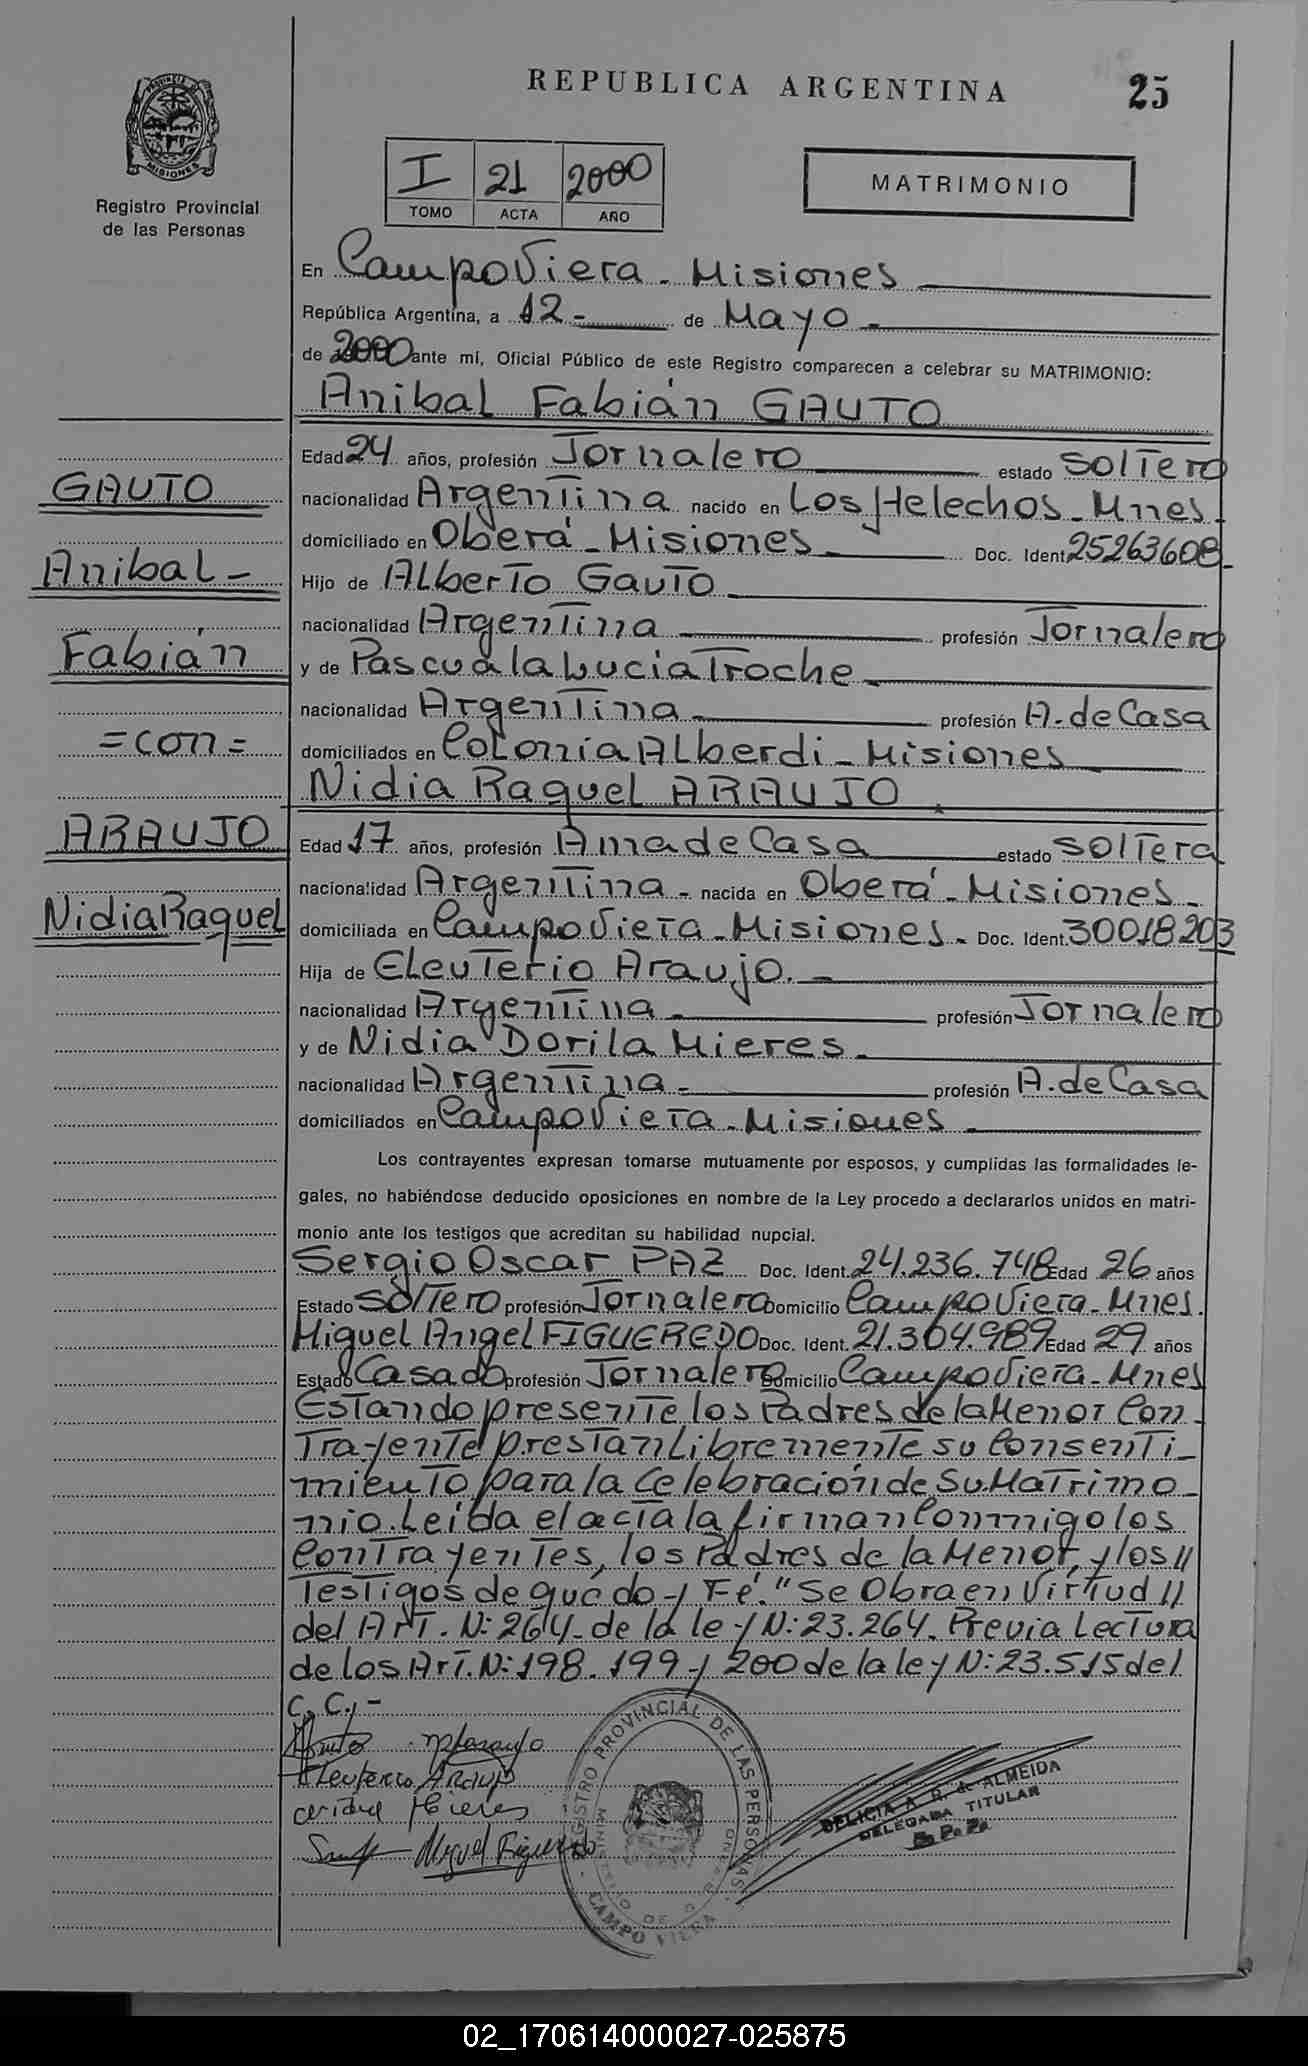 REPUBLICA ARGENTINA
25
PROVINCIA DE MISIONES
Registro Provincial
de las Personas
I 21 2000
TOMO ACTA AÑO
MATRIMONIO
En Campo Viera - Misiones
República Argentina, a 12 - de Mayo -
de 2000 ante mí, Oficial Público de este Registro comparecen a celebrar su MATRIMONIO:
Anibal Fabián GAUTO
Edad 24 años, profesión Jornalero estado Soltero
nacionalidad Argentina nacido en Los Helechos - Mnes -
domiciliado en Oberá - Misiones - Doc. Ident. 25263608 -
Hijo de Alberto Gauto
nacionalidad Argentina profesión Jornalero
y de Pascuala Lucia Troche -
nacionalidad Argentina - profesión A. de Casa
domiciliados en Colonia Alberdi - Misiones
GAUTO
Anibal -
Fabián
= con =
ARAUJO
Nidia Raquel
Nidia Raquel ARAUJO
Edad 17 años, profesión Ama de Casa estado Soltera
nacionalidad Argentina - nacida en Oberá - Misiones -
domiciliada en Campo Viera - Misiones - Doc. Ident. 30018203
Hija de Eleuterio Araujo. -
nacionalidad Argentina - profesión Jornalero
y de Nidia Dorila Mieres -
nacionalidad Argentina - profesión A. de Casa
domiciliados en Campo Viera - Misiones -
Los contrayentes expresan tomarse mutuamente por esposos, y cumplidas las formalidades le-
gales, no habiéndose deducido oposiciones en nombre de la Ley procedo a declararlos unidos en matri-
monio ante los testigos que acreditan su habilidad nupcial.
Sergio Oscar PAZ Doc. Ident. 24.236.748 Edad 26 años
Estado Soltero profesión Jornalero Domicilio Campo Viera - Mnes.
Miguel Angel FIGUEREDO Doc. Ident. 21.304.989 Edad 29 años
Estado Casado profesión Jornalero Domicilio Campo Viera - Mnes
Estando presente los Padres de la Menor Con-
trayente prestan Libremente su Consenti-
miento para la Celebración de Su Matrimo-
nio. Leída el acta la firman Conmigo los
Contrayentes, los Padres de la Menor, y los //
Testigos de que doy Fé. "Se Obra en Virtud //
del Art. N: 264 - de la ley N: 23.264. Previa Lectura
de los Art. N: 198 - 199 y 200 de la ley N: 23.515 del
C. C. -
Eleuterio Araujo
Mieres
Miguel Figueredo
REGISTRO PROVINCIAL DE LAS PERSONAS
CAMPO VIERA
DELICIA A. R. de ALMEIDA
DELEGADA TITULAR
02_170614000027-025875